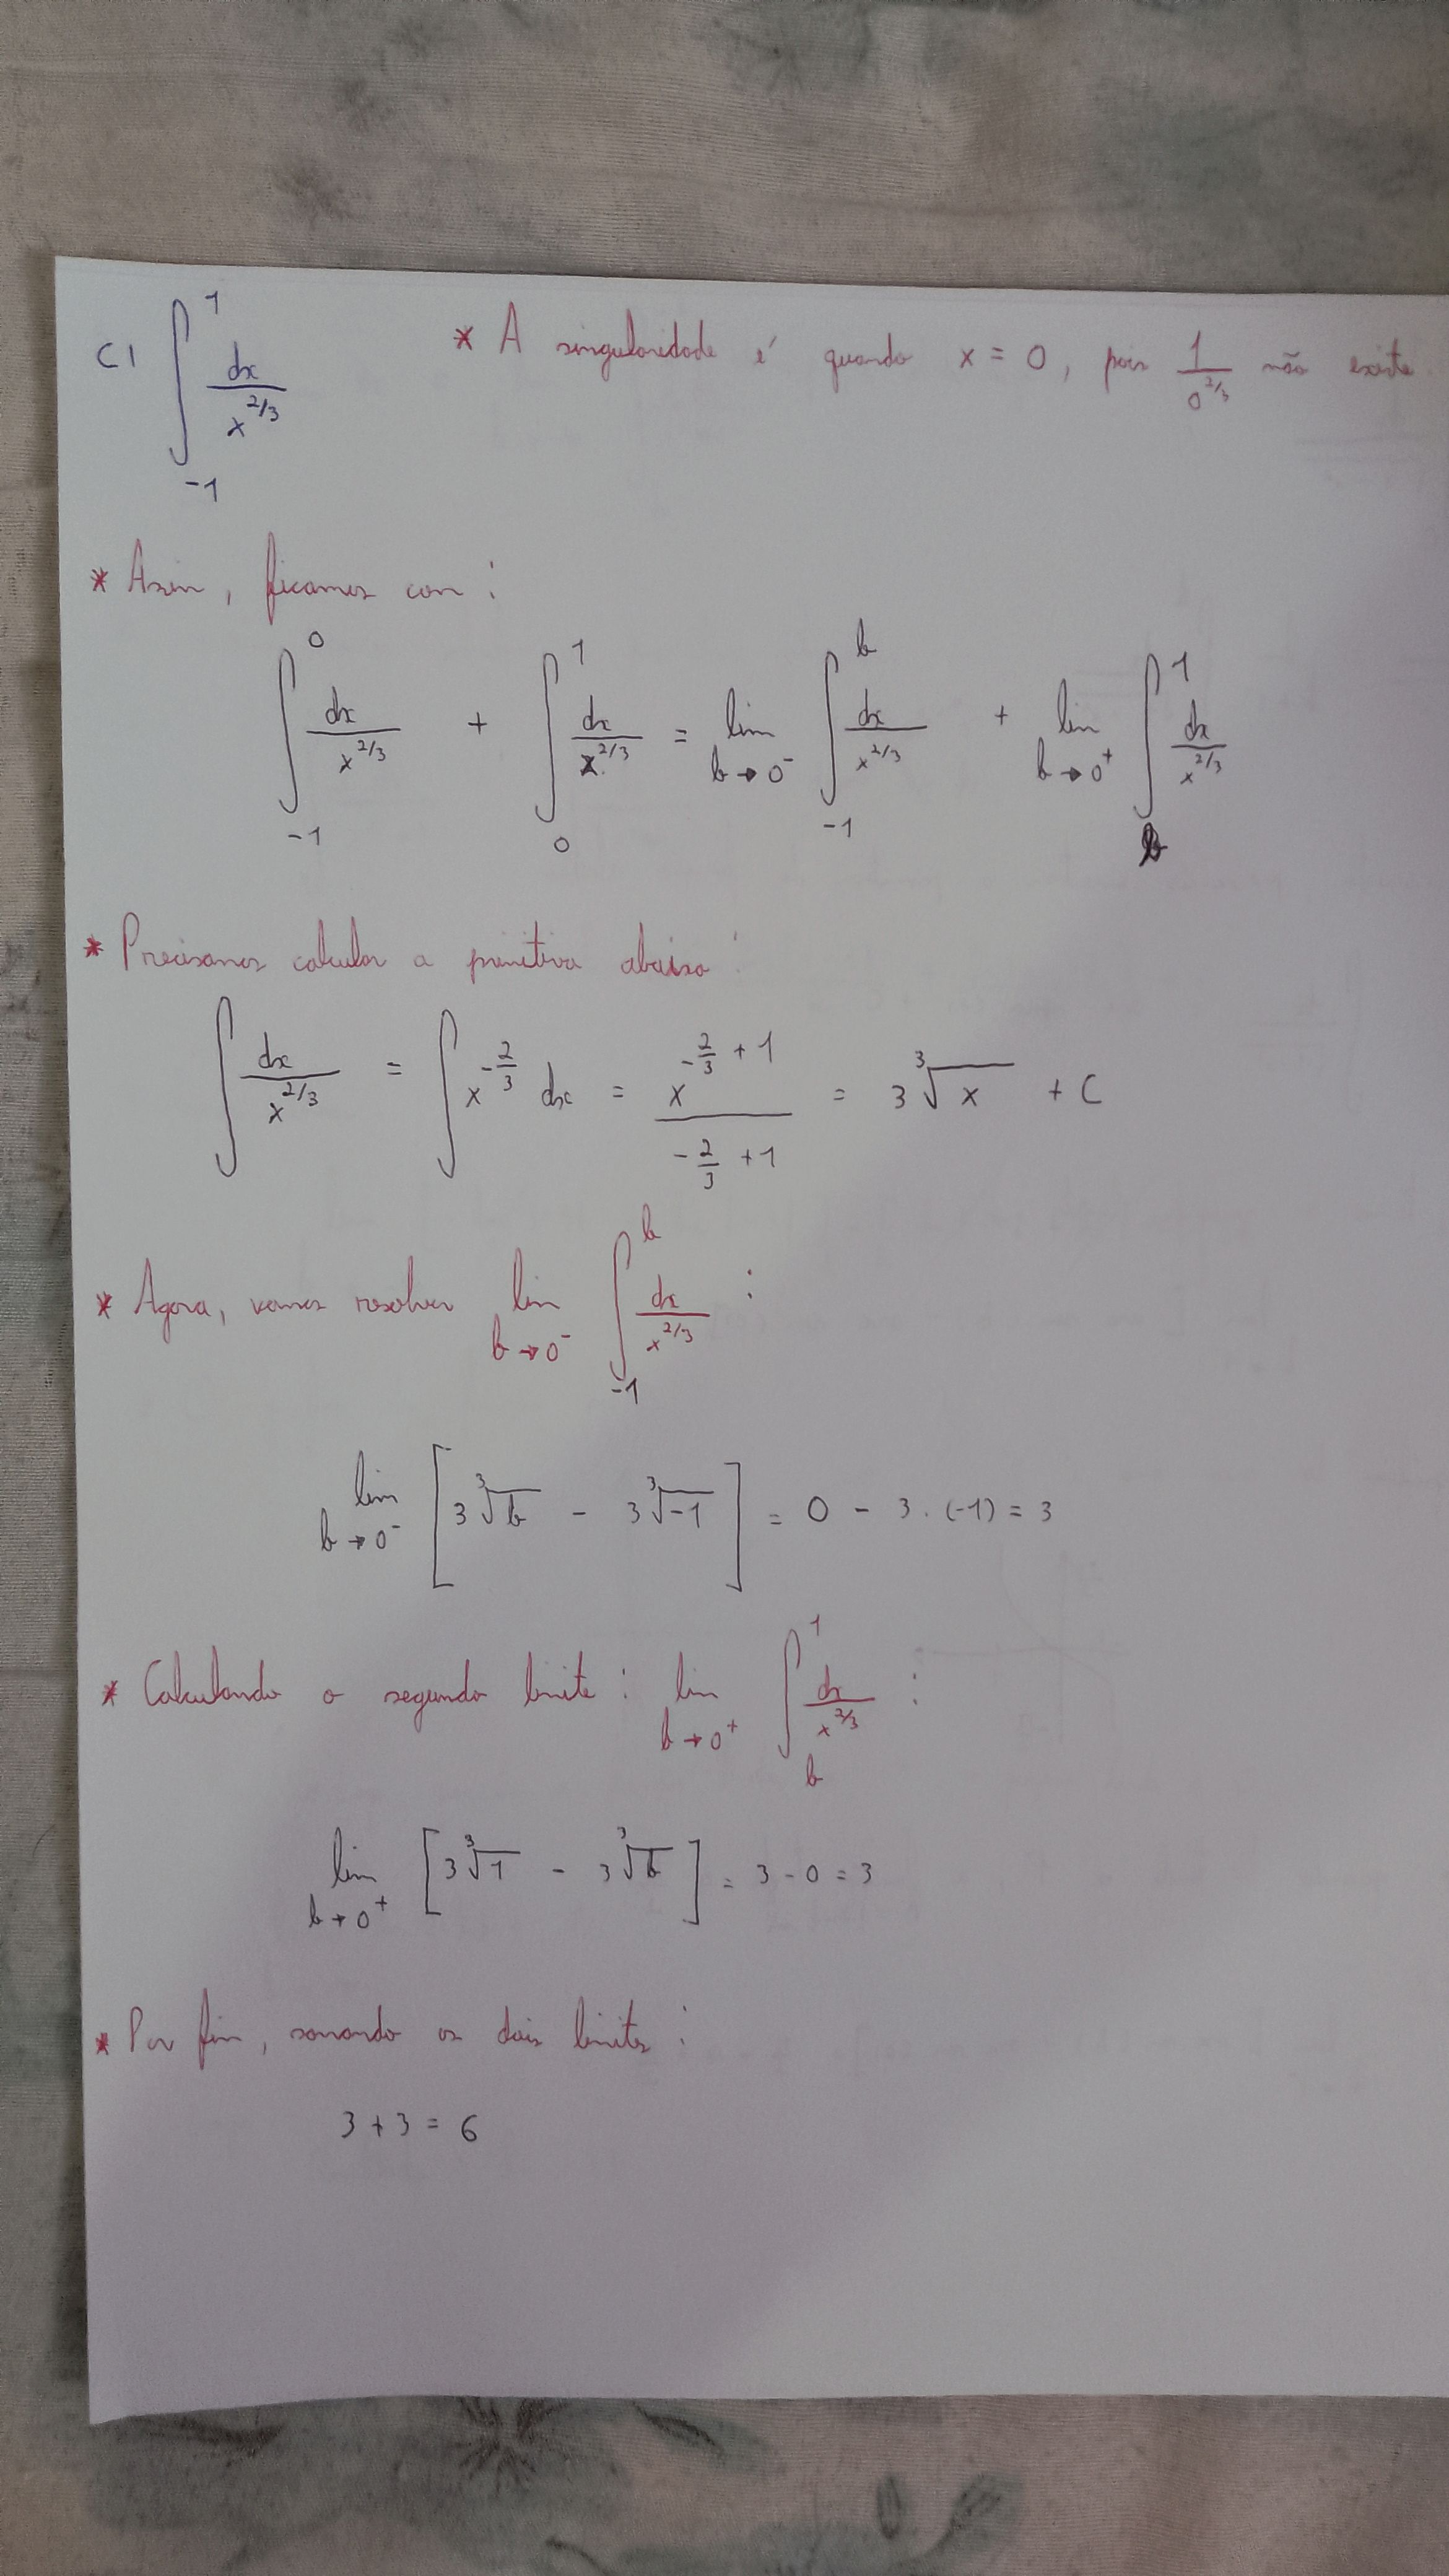 C) ∫_{-1}^{1} dx/x^{2/3} * A singularidade é quando x = 0, pois 1/0^{2/3} não existe
* Assim, ficamos com:
∫_{-1}^{0} dx/x^{2/3} + ∫_{0}^{1} dx/x^{2/3} = lim_{b→0^-} ∫_{-1}^{b} dx/x^{2/3} + lim_{b→0^+} ∫_{b}^{1} dx/x^{2/3}
* Precisamos calcular a primitiva abaixo:
∫ dx/x^{2/3} = ∫ x^{-2/3} dx = x^{-2/3 + 1}/(-2/3 + 1) = 3∛x + C
* Agora, vamos resolver lim_{b→0^-} ∫_{-1}^{b} dx/x^{2/3} :
lim_{b→0^-} [3∛b - 3∛-1] = 0 - 3 . (-1) = 3
* Calculando o segundo limite: lim_{b→0^+} ∫_{b}^{1} dx/x^{2/3} :
lim_{b→0^+} [3∛1 - 3∛b] = 3 - 0 = 3
* Por fim, somando os dois limites:
3 + 3 = 6